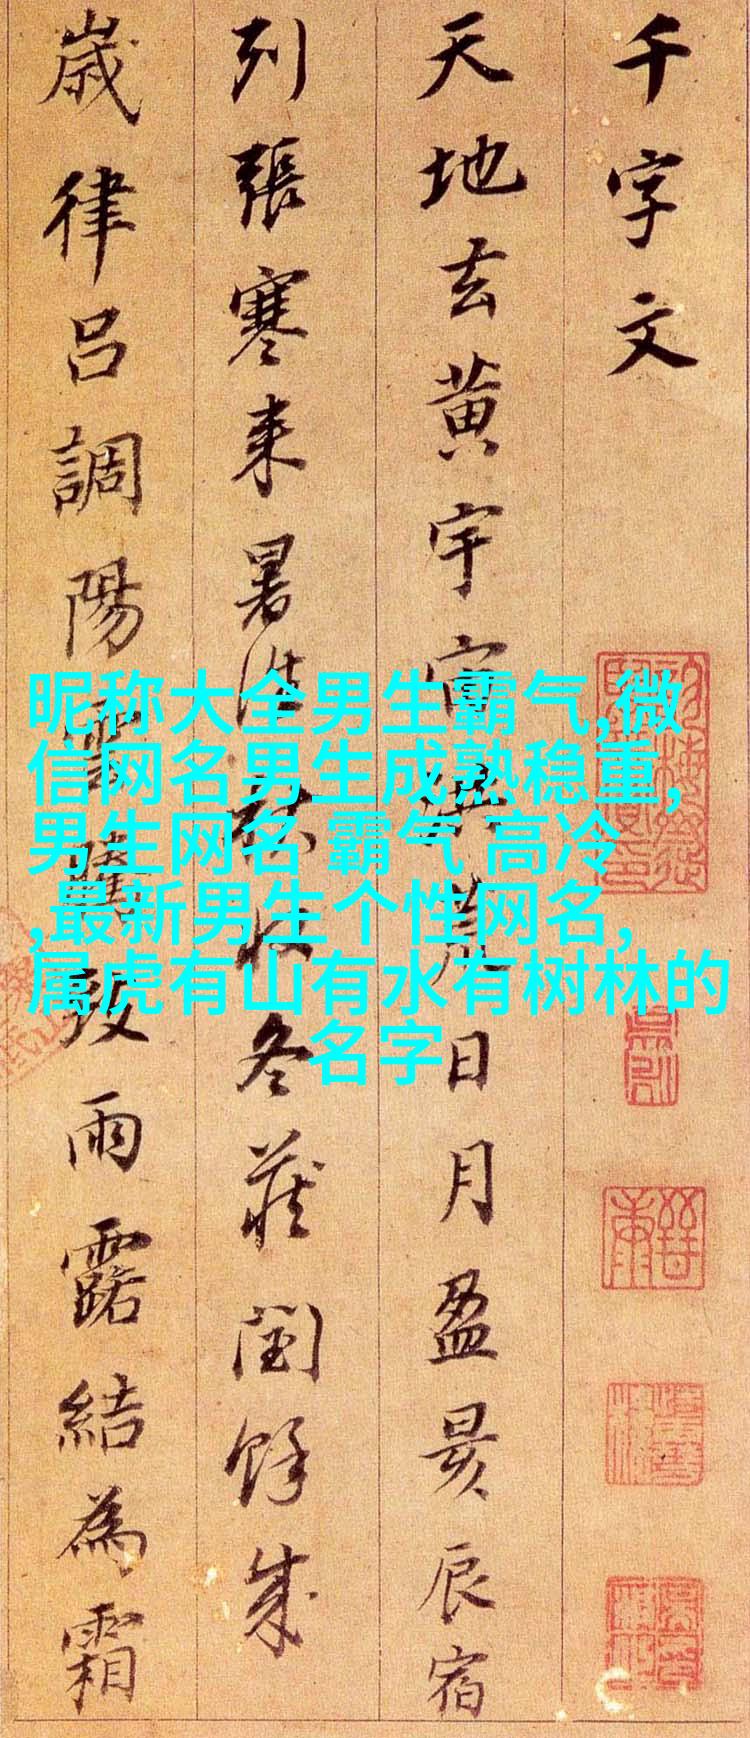 千字文
天地玄黄宇宙洪荒日月盈昃辰宿
列張寒来暑往秋收冬蔵閏餘成
歲律吕調陽雲騰致雨露結為霜
昵称大全男生霸气,微
信网名男生成熟稳重,
男生网名 霸气 高冷
,最新男生个性网名,
属虎有山有水有树林的
名字